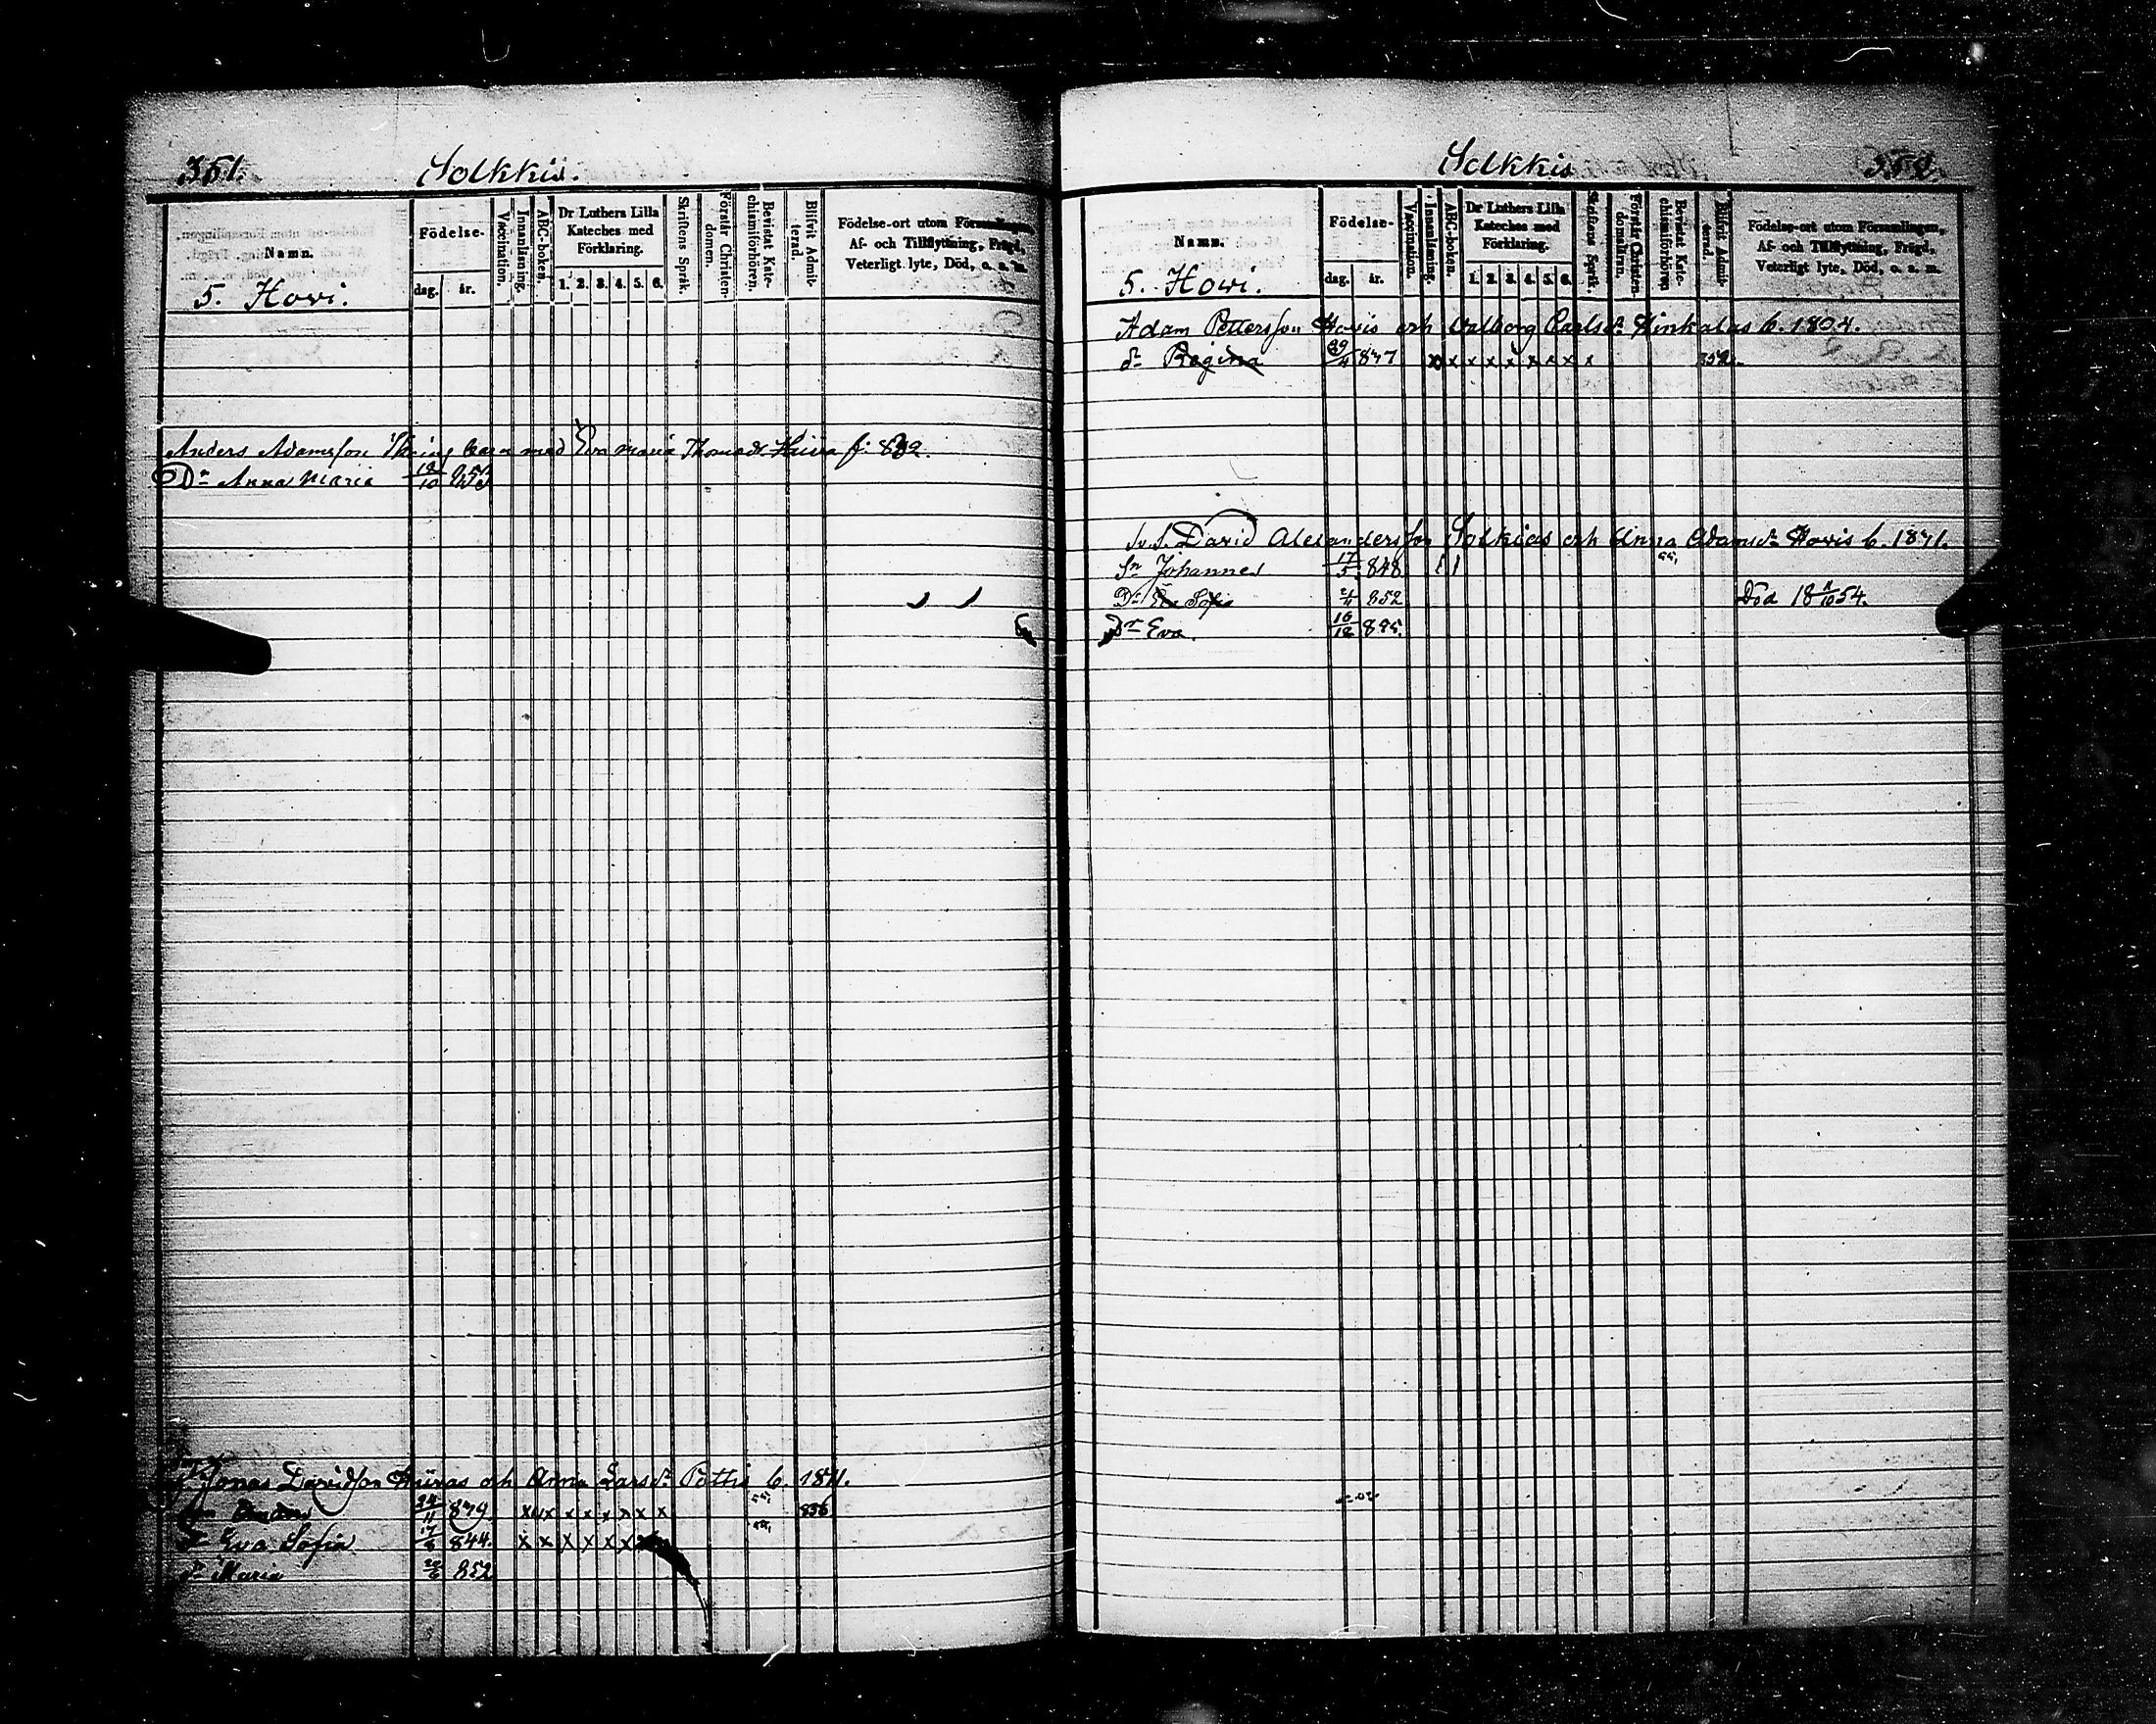 351. Solkkis.
Namn.
Födelse-
dag. år.
Vaccination.
Innanläsning.
ABC-boken.
Dr Luthers Lilla Kateches med Förklaring.
1. 2. 3. 4. 5. 6.
Skriftens Språk.
Förstår Christen-domen.
Bevistat Kate-chismiförhören.
Blifvit Admit-terad.
Födelse-ort utom Församlingen, Af- och Tillflyttning, Frägd, Veterligt lyte, Död, o. s. m.
5. Hovi.
Anders Adamsson med Eva Maria Thomasdr
Dr Anna Maria 12/10 853
Jonas Davidson och Anna Larsdr Pottis b. 1811.
24/4 x x x x x x x x 856
Dr Eva Sofia 7/8 844. x x x x x x
Dr Maria 22/6 852
Solkkis 352.
Namn.
Födelse-
dag. år.
Vaccination.
Innanläsning.
ABC-boken.
Dr Luthers Lilla Kateches med Förklaring.
1. 2. 3. 4. 5. 6.
Skriftens Språk.
Förstår Christen-domslären.
Bevistat Kate-chismiförhören.
Blifvit Admit-terad.
Födelse-ort utom Församlingen, Af- och Tillflyttning, Frägd, Veterligt lyte, Död, o. s. m.
5. Howi.
Adam Pettersson Hovis och Valborg Carlsdr Kinkalas b. 1804.
dr Regina 29/4 837 x x x x x x x x x 852.
David Alexandersson Solkias och Anna Adamsdr Hovis b. 1871.
Sn Johannes 17/5 848
Dr Eva Sofia 852 Död 18 54.
Dr Eva. 16/12 855.